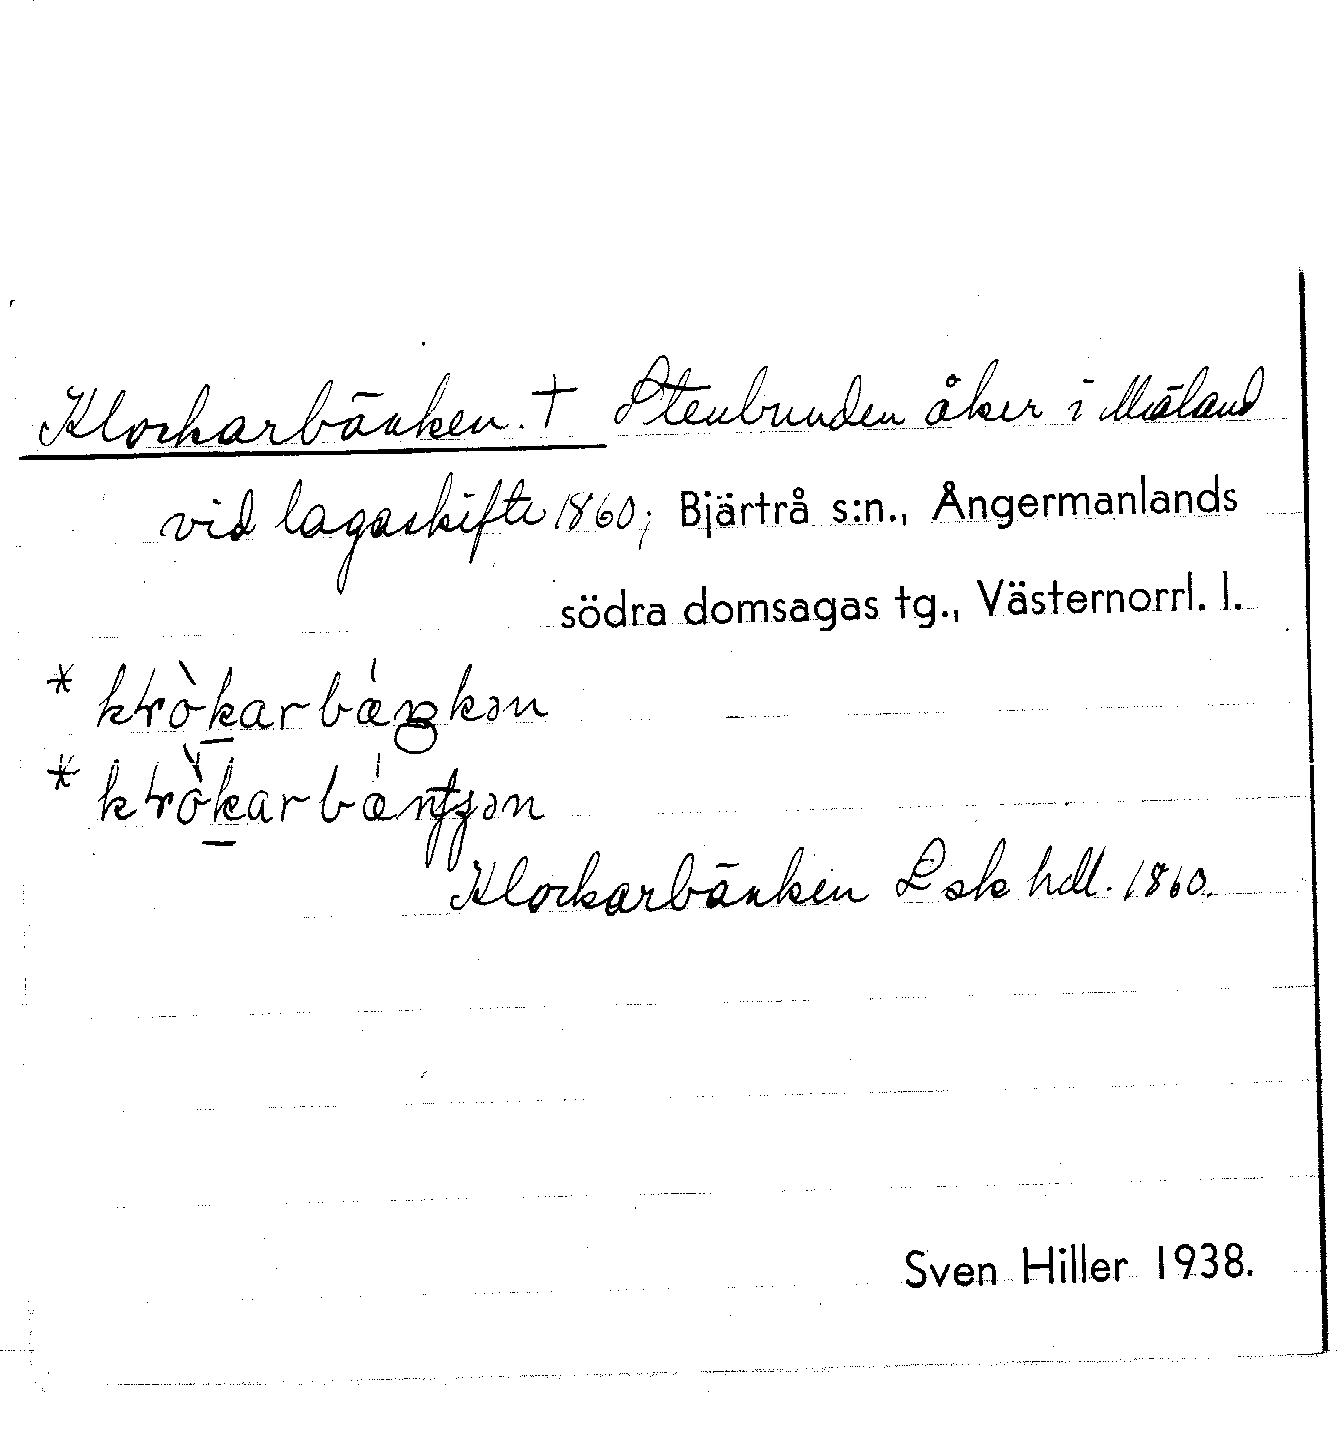 Klockarbänken. † Stenbunden åker i Mäland
vid lagaskifte 1860; Bjärtrå s:n., Ångermanlands
södra domsagas tg., Västernorrl. l.
Klockarbänken Lsk hdl. 1860.
Sven Hiller 1938.